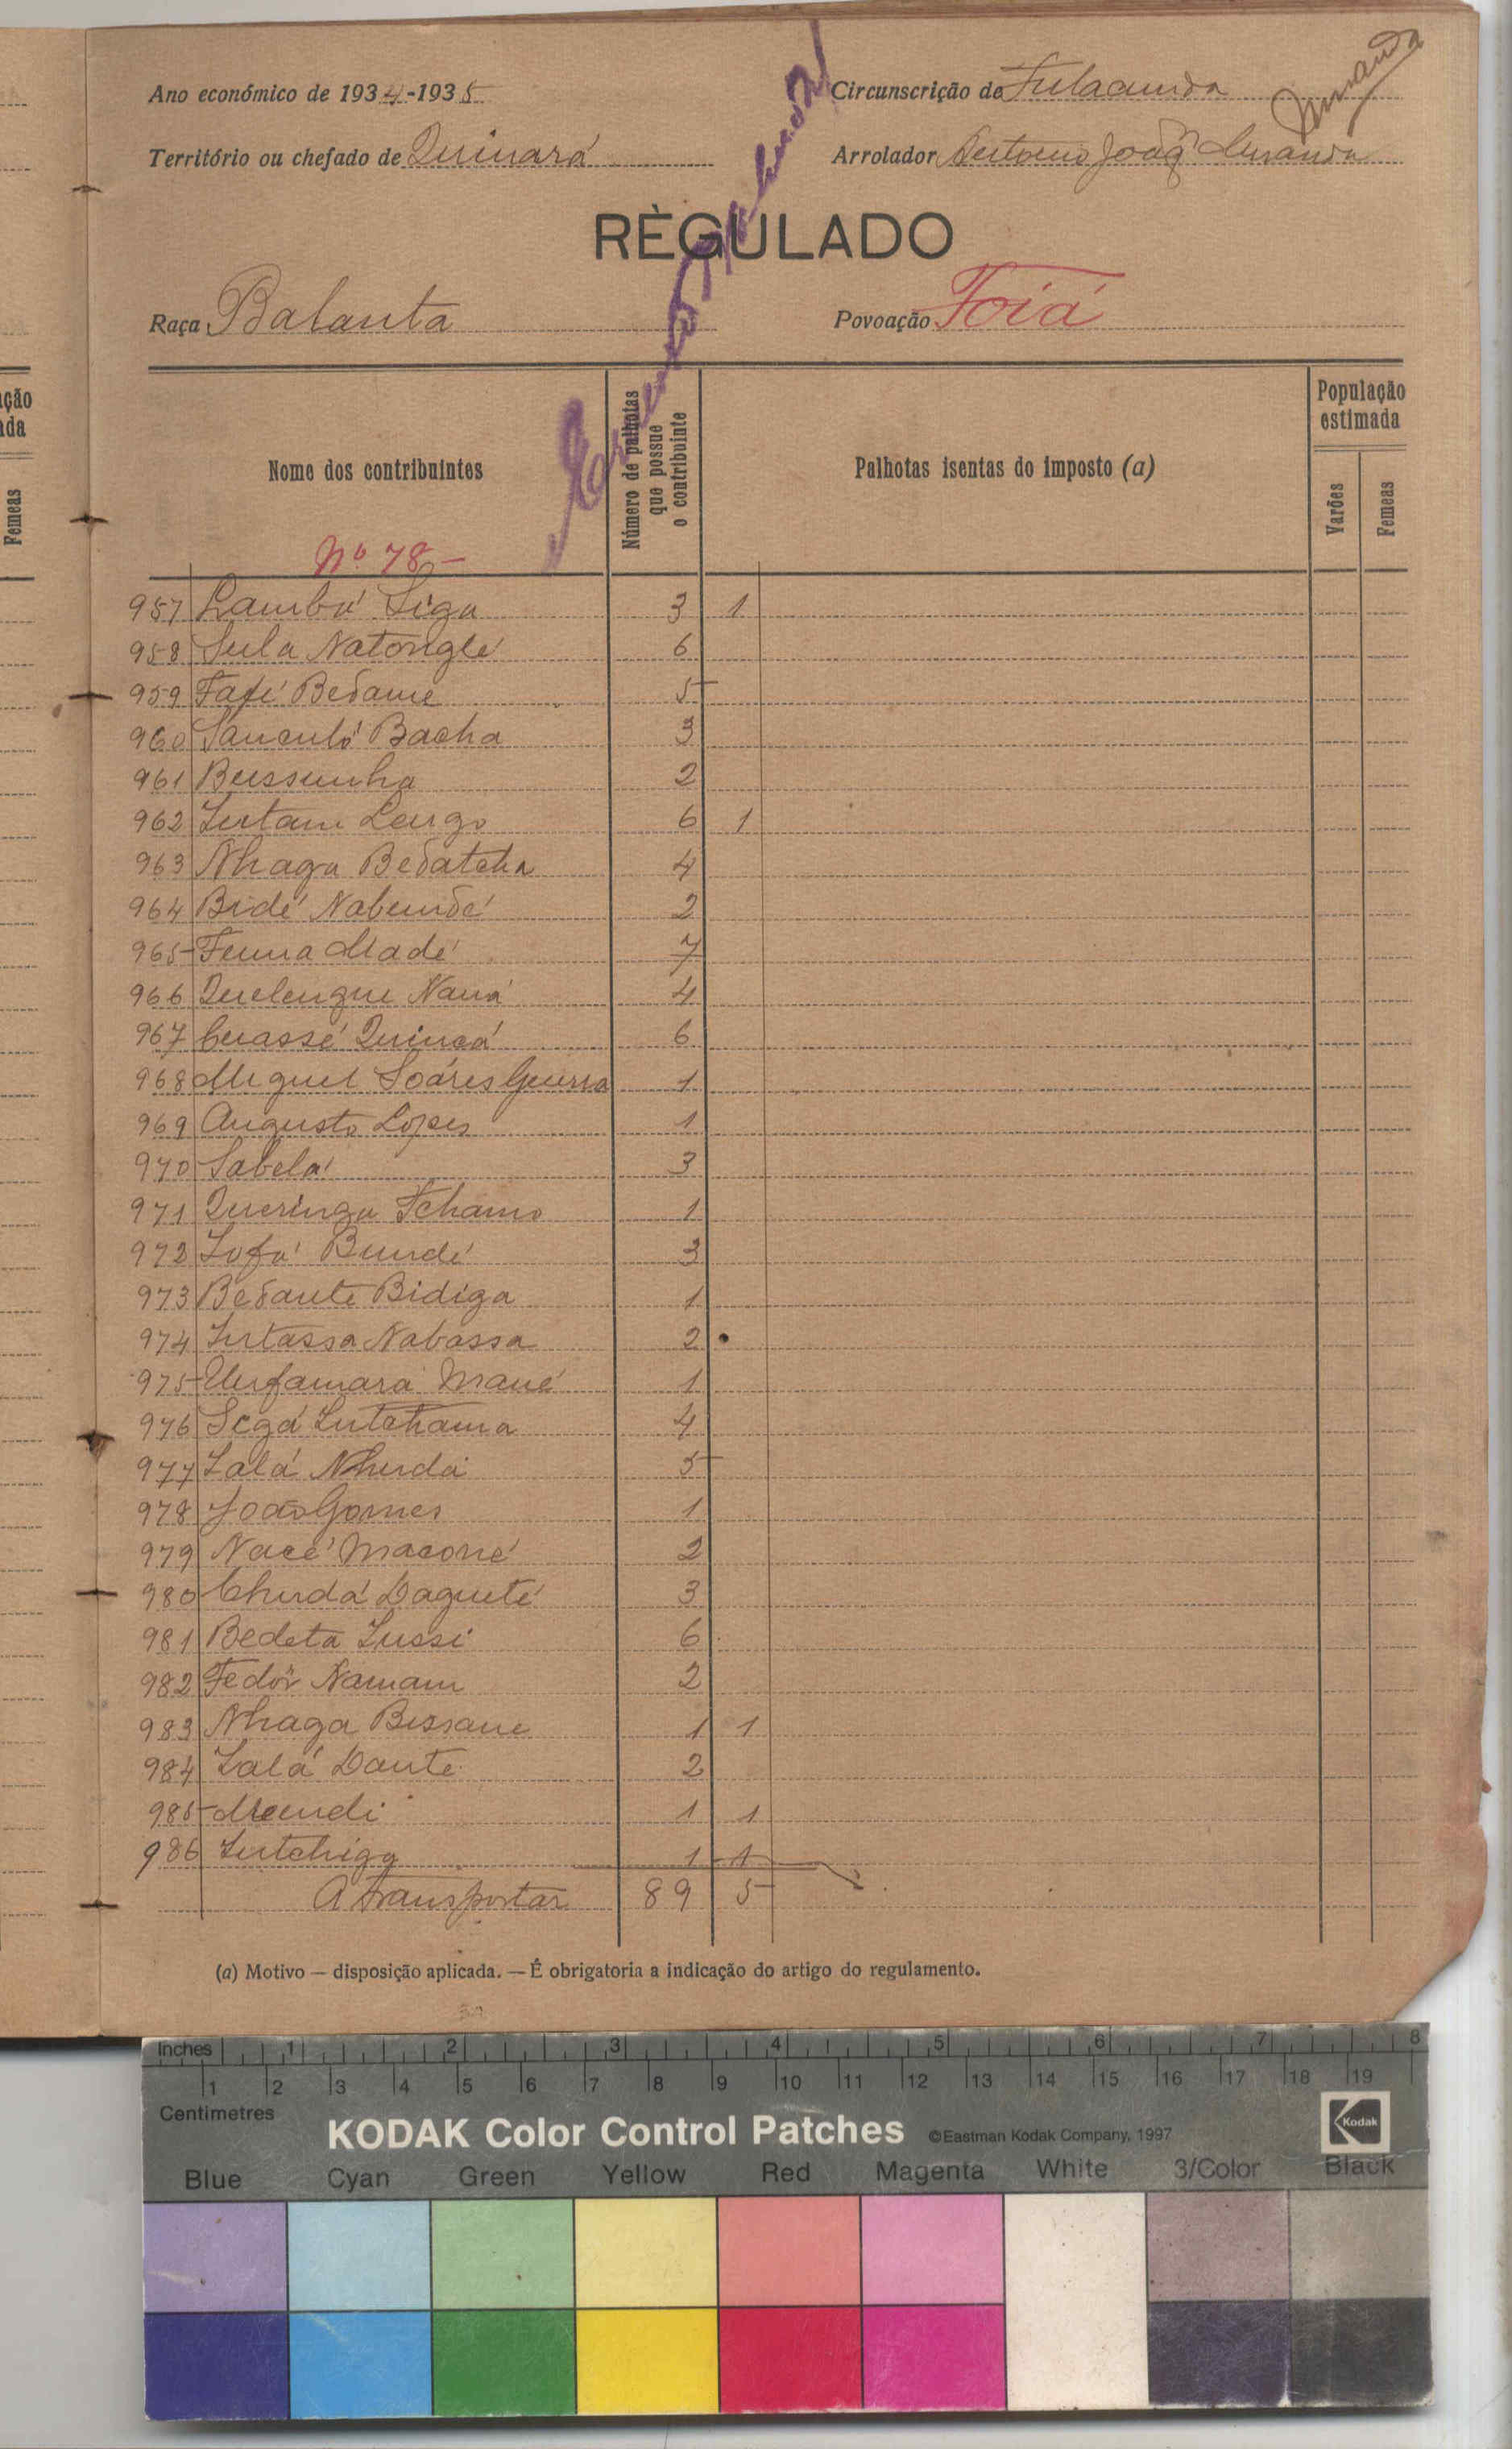 Ano económico de 1934-1935
Circunscrição de Fulacunda
Miranda
Território ou chefado de Quinará
Arrolador Antonio Joaq. Miranda
RÈGULADO
Raça Balanta
Povoação Foiá
Nome dos contribuintes
Número de palhotas que possue o contribuinte
Palhotas isentas do imposto (a)
População estimada
Varões
Femeas
Nº 78-
957 Lambá Siga 3 1
958 Sula Natonglé 6
959 Fafé Bedame 5
960 Sanculó Bacha 3
961 Bussunha 2
962 Intam Lengo 6 1
963 Nhaga Bedatcha 4
964 Bidé Nabundé 2
965 Fenna Madé 7
966 Quelengue Nauá 4
967 Cuassé Quincá 6
968 Miguel Soáres Guerra 1
969 Augusto Lopes 1
970 Sabelá 3
971 Queringa Tchamo 1
972 Infá Bundé 3
973 Bedante Bidiga 1
974 Intassa Nabassa 2
975 Unfamara Mané 1
976 Segá Intchama 4
977 Lalá Nhudá 5
978 João Gomes 1
979 Nacé Maconé 2
980 Chudá Daguité 3
981 Bedeta Iussi 6
982 Fedôr Namam 2
983 Nhaga Bissane 1 1
984 Lalá Dante 2
985 Mundi 1 1
986 Intchiga 1 1
A transportar 89 5
(a) Motivo — disposição aplicada. — É obrigatoria a indicação do artigo do regulamento.
ção
da
Femeas
Inches 1 2 3 4 5 6 7 8
1 2 3 4 5 6 7 8 9 10 11 12 13 14 15 16 17 18 19
Centimetres
KODAK Color Control Patches ©Eastman Kodak Company, 1997
Kodak
Blue Cyan Green Yellow Red Magenta White 3/Color Black